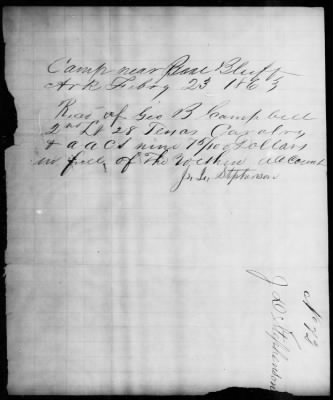 Camp near Pine Bluff
Ark Febry 23 1863
Recd of Geo B Campbell
2nd Lt 28 Texas Cavalry
& a a C S nine 15/100 Dollars
in full of the within account
Stephenson
No 72
J Stephenson